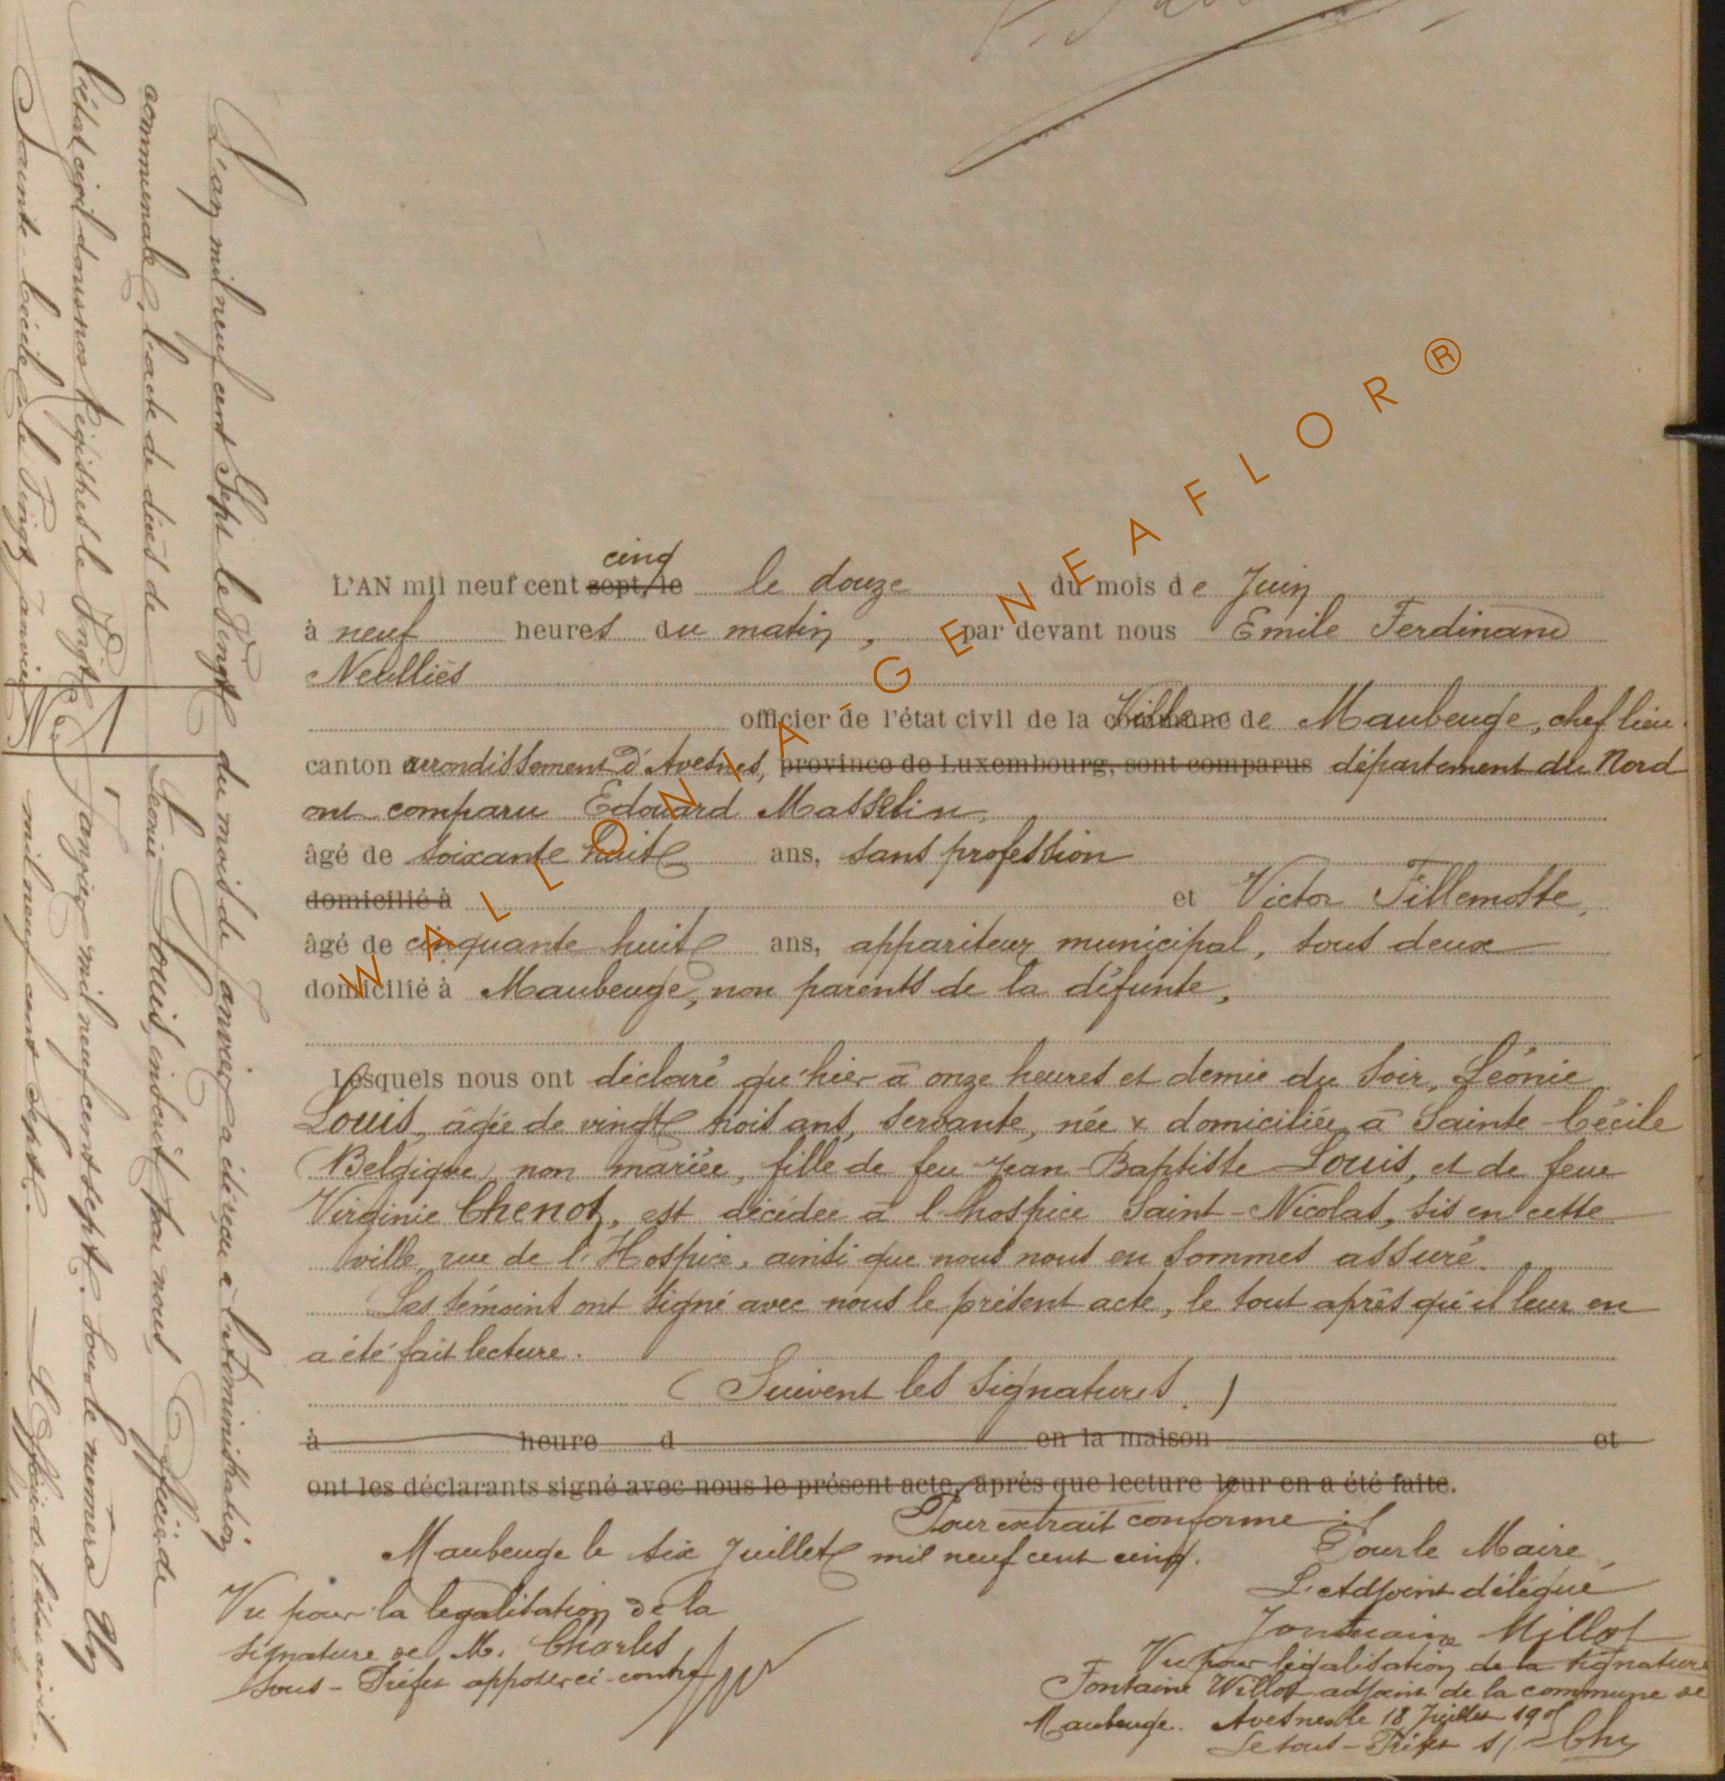 L'an mil neuf cent Sept le Vingt du mois de Janvier a été reçu à l'Administration
communale, l'acte de décès de Léonie Louis, inscrit par nous Officier de
l'état civil dans nos Registres le Vingt Janvier mil neuf cent sept. sous le numéro Un
Sainte-Cécile, le Vingt Janvier mil neuf cent sept. L'Officier de l'état civil.
No 1
L'AN mil neuf cent sept, le cinq le douze du mois de Juin
à neuf heures du matin, par devant nous Emile Ferdinand
Neulliés
officier de l'état civil de la commune Ville de Maubeuge, chef lieu
canton arrondissement d'Avesnes, province de Luxembourg, sont comparus département du Nord
ont comparu Edouard Masselin,
âgé de soixante huit ans, sans profession
domicilié à et Victor Fillemotte,
âgé de cinquante huit ans, appariteur municipal, tous deux
domicilié à Maubeuge, non parents de la défunte,
Lesquels nous ont déclaré qu'hier à onze heures et demie du soir, Léonie
Louis, âgée de vingt trois ans, servante, née & domiciliée à Sainte-Cécile
(Belgique) non mariée, fille de feu Jean-Baptiste Louis, et de feue
Virginie Chenot, est décédée à l'hospice Saint-Nicolas, sis en cette
ville, rue de l'Hospice, ainsi que nous nous en sommes assuré.
Les témoins ont signé avec nous le présent acte, le tout après qu'il leur en
a été fait lecture.
(Suivent les signatures.)
à heure d en la maison et
ont les déclarants signé avec nous le présent acte, après que lecture leur en a été faite.
Pour extrait conforme :
Maubeuge le six Juillet mil neuf cent cinq. Pour le Maire,
L'Adjoint délégué
Vu pour la legalisation de la
signature de M. Charles
Sous-Préfet apposée ci-contre
Vu pour légalisation de la signature
Fontaine Willot adjoint de la commune de
Maubeuge. Avesnes le 18 Juillet 1905
Le sous-Préfet s/
WALLONIA-GENEAFLOR®